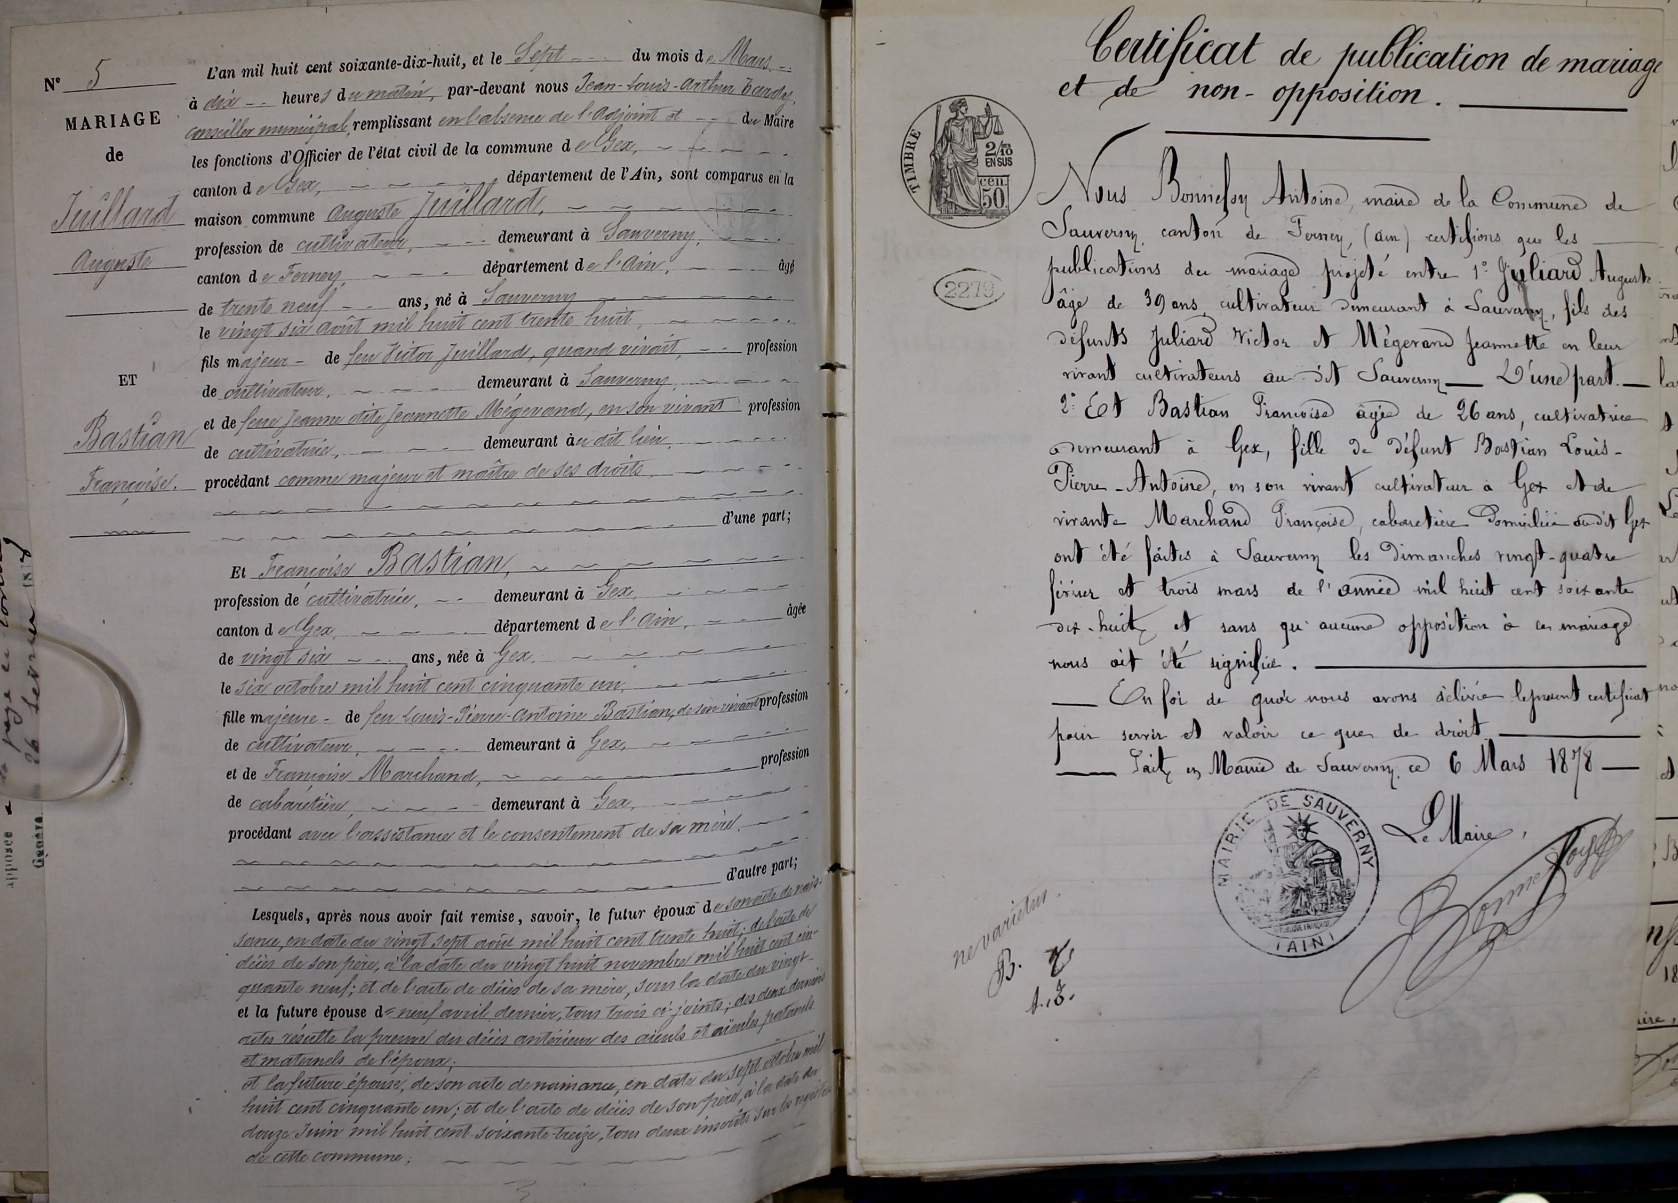 N° 5
MARIAGE
de
Juillard
Auguste
ET
Bastian
Françoise.
L'an mil huit cent soixante-dix-huit, et le Sept du mois de Mars,
à dix heures du matin, par-devant nous Jean-Louis-Arthur
conseiller municipal, remplissant en l'absence de l'adjoint et du Maire
les fonctions d'Officier de l'état civil de la commune de Gex,
canton de Gex, département de l'Ain, sont comparus en la
maison commune Auguste Juillard,
profession de cultivateur, demeurant à Sauverny,
canton de Ferney, département de l'Ain, âgé
de trente neuf ans, né à Sauverny
le vingt six août mil huit cent trente huit,
fils majeur de feu Victor Juillard, quand vivait, profession
de cultivateur, demeurant à Sauverny,
et de feue Jeanne dite Jeannette Mégevand, en son vivant profession
de cultivatrice, demeurant au dit lieu,
procédant comme majeur et maître de ses droits
d'une part;
Et Françoise Bastian,
profession de cultivatrice, demeurant à Gex,
canton de Gex, département de l'Ain, âgée
de vingt six ans, née à Gex,
le six octobre mil huit cent cinquante un,
fille majeure de feu Louis-Pierre-Antoine Bastian, de son vivant profession
de cultivateur, demeurant à Gex,
et de Françoise Marchand, profession
de cabaretière, demeurant à Gex,
procédant avec l'assistance et le consentement de sa mère,
d'autre part;
Lesquels, après nous avoir fait remise, savoir, le futur époux de son acte de nais-
sance, en date du vingt sept août mil huit cent trente huit; de l'acte de
décès de son père, à la date du vingt huit novembre mil huit cent cin-
quante neuf; et de l'acte de décès de sa mère, sous la date du vingt-
et la future épouse d= neuf avril dernier, tous trois ci-joints; des deux derniers
actes résulte la preuve du décès antérieur des aïeuls et aïeules paternels
et maternels de l'époux;
et la future épouse, de son acte de naissance, en date du sept octobre mil
huit cent cinquante un; et de l'acte de décès de son père, à la date du
douze Juin mil huit cent soixante treize, tous deux inscrits sur les registres
de cette commune;
Certificat de publication de mariage
et de non-opposition.
TIMBRE
2/10
EN SUS
50 cen.
2279
Nous Bonnefoy Antoine, maire de la Commune de
Sauverny, canton de Ferney, (ain) certifions que les
publications du mariage projeté entre 1° Juliard Auguste
âgé de 39 ans, cultivateur demeurant à Sauverny, fils des
défunts Juliard Victor et Mégevand Jeannette en leur
vivant cultivateurs au dit Sauverny D'une part.
2° Et Bastian Françoise âgée de 26 ans, cultivatrice
demeurant à Gex, fille de défunt Bastian Louis-
Pierre-Antoine, en son vivant cultivateur à Gex et de
vivante Marchand Françoise, cabaretière Domiciliée audit Gex
ont été faites à Sauverny les Dimanches vingt-quatre
février et trois mars de l'année mil huit cent soixante
dix-huit, et sans qu'aucune opposition à ce mariage
nous ait été signifiée.
En foi de quoi nous avons délivré le présent certificat
pour servir et valoir ce que de droit.
Fait en Mairie de Sauverny ce 6 Mars 1878
Le Maire,
MAIRIE DE SAUVERNY
(AIN)
Bonnefoy
ne varietur.
B.